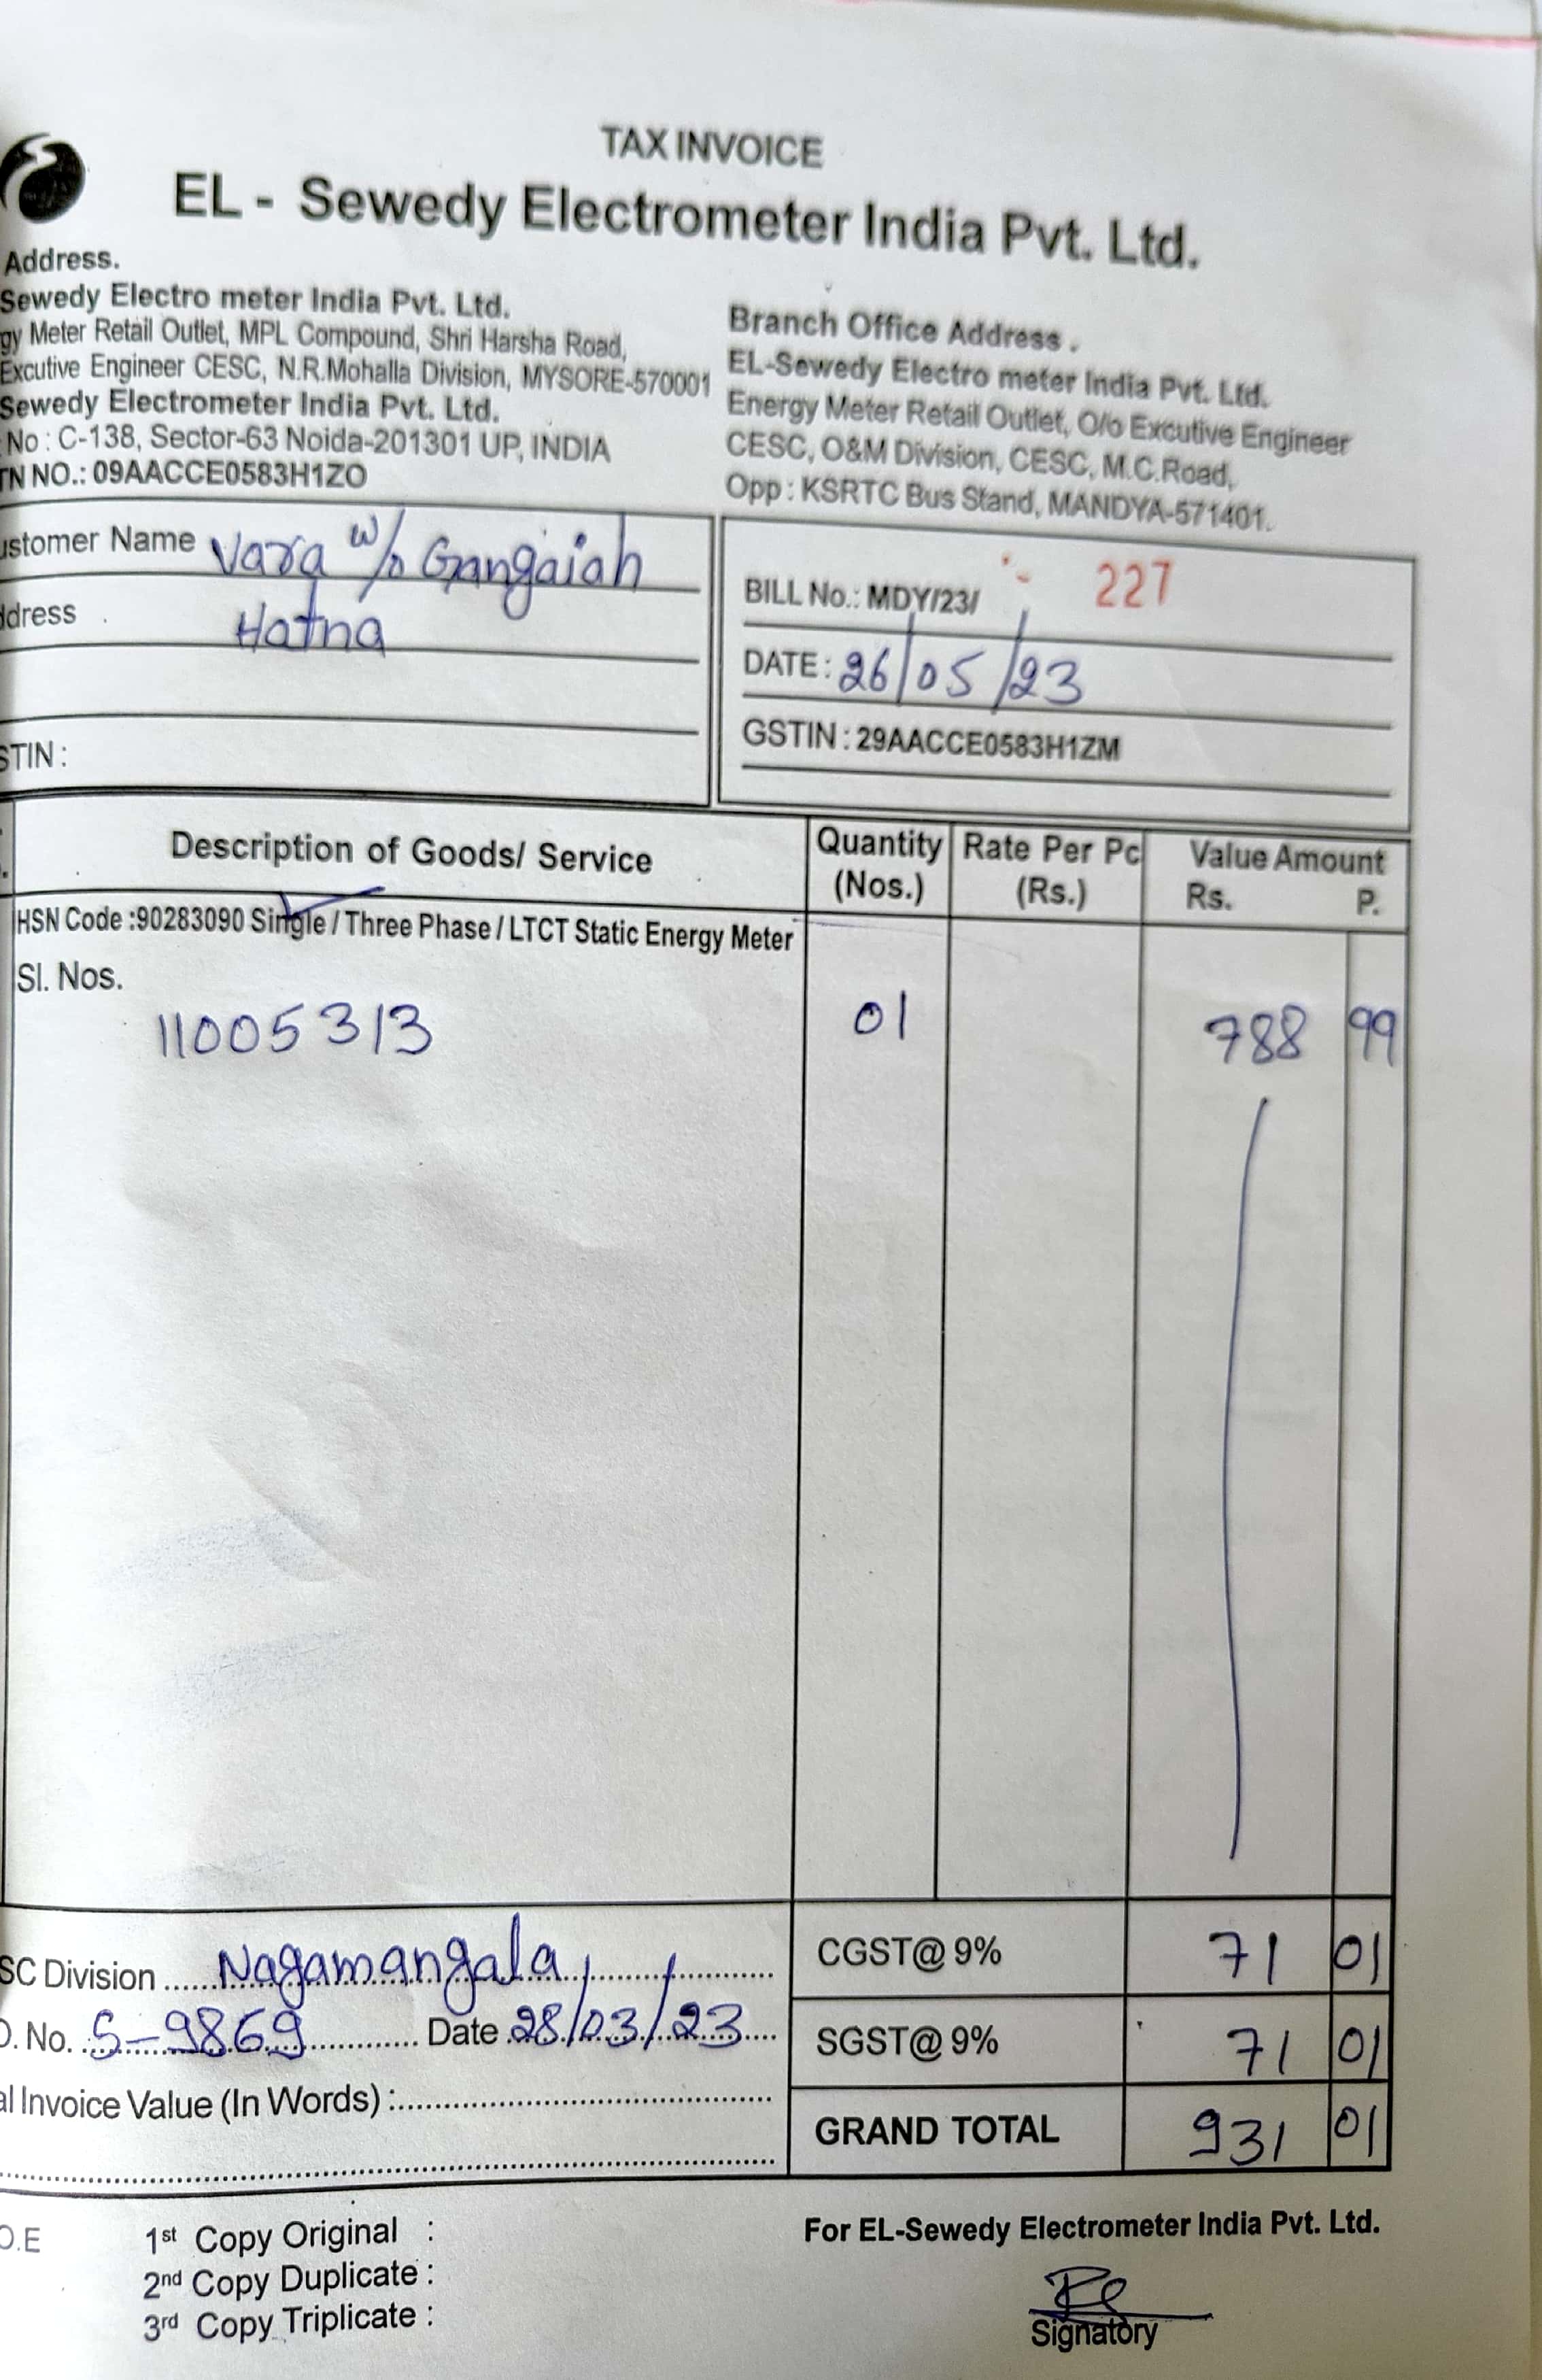 TAX INVOICE
EL - Sewedy Electrometer India Pvt. Ltd.
Address.
Sewedy Electro meter India Pvt. Ltd.
gy Meter Retail Outlet, MPL Compound, Shri Harsha Road,
Excutive Engineer CESC, N.R.Mohalla Division, MYSORE-570001
Sewedy Electrometer India Pvt. Ltd.
No : C-138, Sector-63 Noida-201301 UP, INDIA
TN NO.: 09AACCE0583H1ZO
Branch Office Address .
EL-Sewedy Electro meter India Pvt. Ltd.
Energy Meter Retail Outlet, O/o Excutive Engineer
CESC, O&M Division, CESC, M.C.Road,
Opp : KSRTC Bus Stand, MANDYA-571401.
ustomer Name Vara w/o Gangaiah
ddress Hatna
STIN :
BILL No.: MDY/23/ 227
DATE : 26/05/23
GSTIN : 29AACCE0583H1ZM
Description of Goods/ Service
Quantity (Nos.)
Rate Per Pc (Rs.)
Value Amount
Rs. P.
HSN Code :90283090 Single / Three Phase / LTCT Static Energy Meter
Sl. Nos.
11005313 01 788 99
SC Division Nagamangala
O. No. S-9869 Date 28/03/23
al Invoice Value (In Words) :
CGST@ 9% 71 01
SGST@ 9% 71 01
GRAND TOTAL 931 01
O.E
1st Copy Original :
2nd Copy Duplicate :
3rd Copy Triplicate :
For EL-Sewedy Electrometer India Pvt. Ltd.
Signatory